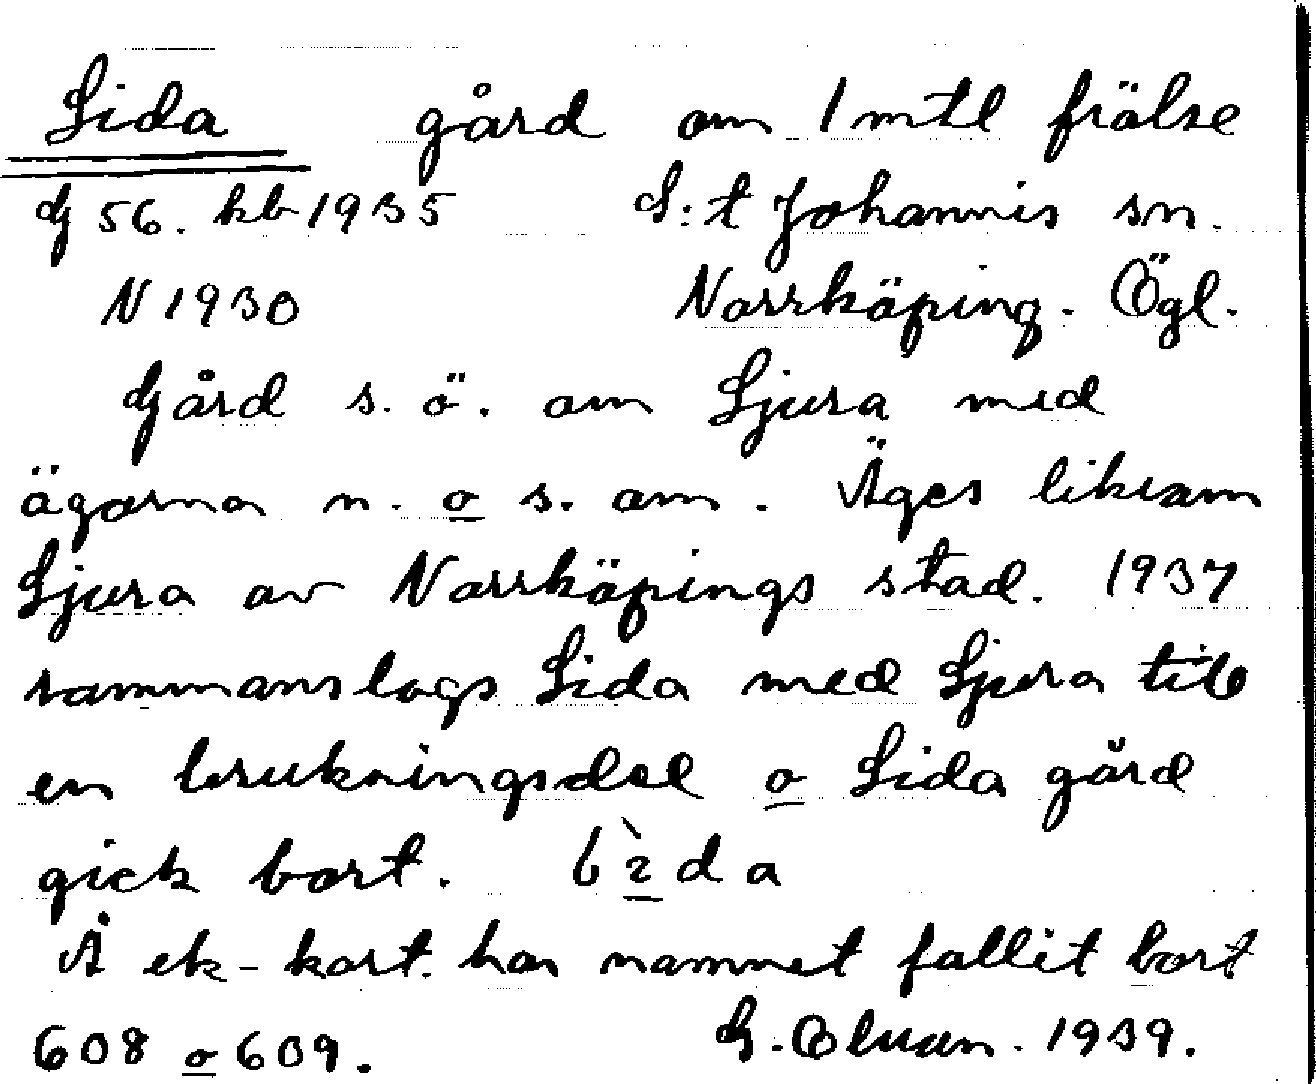 Lida gård om 1 mtl frälse
G 56. kb 1935 S:t Johannis sn.
N 1930 Norrköping. Ögl.
Gård s. ö. om Ljura med
ägorna n. o s. om. Äges liksom
Ljura av Norrköpings stad. 1937
sammanslogs Lida med Ljura till
en brukningsdel o Lida gård
gick bort.
Å ek-kart. har namnet fallit bort
608 o 609. 1939.